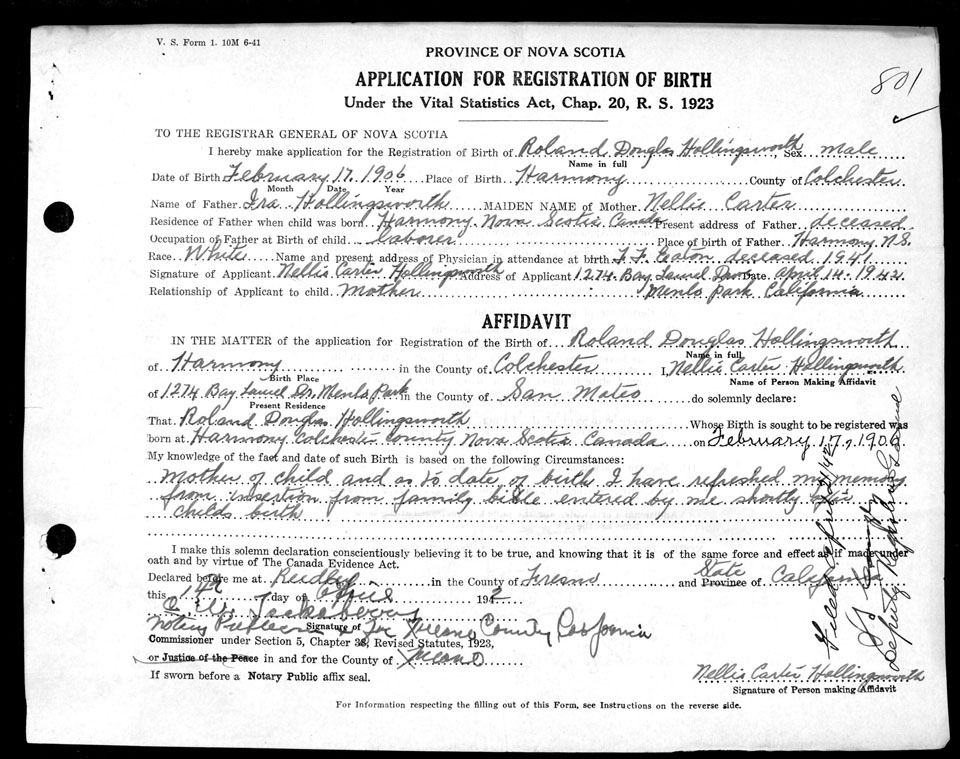 V. S. Form 1. 10M 6-41
801
PROVINCE OF NOVA SCOTIA
APPLICATION FOR REGISTRATION OF BIRTH
Under the Vital Statistics Act, Chap. 20, R. S. 1923
TO THE REGISTRAR GENERAL OF NOVA SCOTIA
I hereby make application for the Registration of Birth of Roland Douglas Hollingsworth, Sex Male
Name in full
Date of Birth February 17. 1906 Place of Birth Harmony County of Colchester
Month Date Year
Name of Father Ira Hollingsworth MAIDEN NAME of Mother Nellie Carter
Residence of Father when child was born Harmony Nova Scotia Canada Present address of Father deceased
Occupation of Father at Birth of child laborer Place of birth of Father Harmony N.S.
Race. White Name and present address of Physician in attendance at birth F. F. Eaton deceased 1941
Signature of Applicant Nellie Carter Hollingsworth Address of Applicant 1274 Bay Laurel Date. April 14. 1942
Relationship of Applicant to child Mother Menlo Park California
AFFIDAVIT
IN THE MATTER of the application for Registration of the Birth of Roland Douglas Hollingsworth
Name in full
of Harmony in the County of Colchester I, Nellie Carter Hollingsworth
Birth Place Name of Person Making Affidavit
of 1274 Bay Laurel Dr. Menlo Park in the County of San Mateo do solemnly declare:
Present Residence
That Roland Douglas Hollingsworth Whose Birth is sought to be registered was
born at Harmony Colchester County Nova Scotia Canada on February 17, 1906
My knowledge of the fact and date of such Birth is based on the following Circumstances:
Mother of child and as to date of birth I have refreshed my memory
from insertion from family bible entered by me shortly after
childs birth
I make this solemn declaration conscientiously believing it to be true, and knowing that it is of the same force and effect as if made under
oath and by virtue of The Canada Evidence Act.
Declared before me at Reedley in the County of Fresno and State Province of California
this 14 day of April 1942
Notary Public Signature of in & for Fresno County California
Commissioner under Section 5, Chapter 38, Revised Statutes, 1923,
or Justice of the Peace in and for the County of Fresno
If sworn before a Notary Public affix seal.
Nellie Carter Hollingsworth
Signature of Person making Affidavit
For Information respecting the filling out of this Form, see Instructions on the reverse side.
Filed April 21/42
Deputy Registrar General